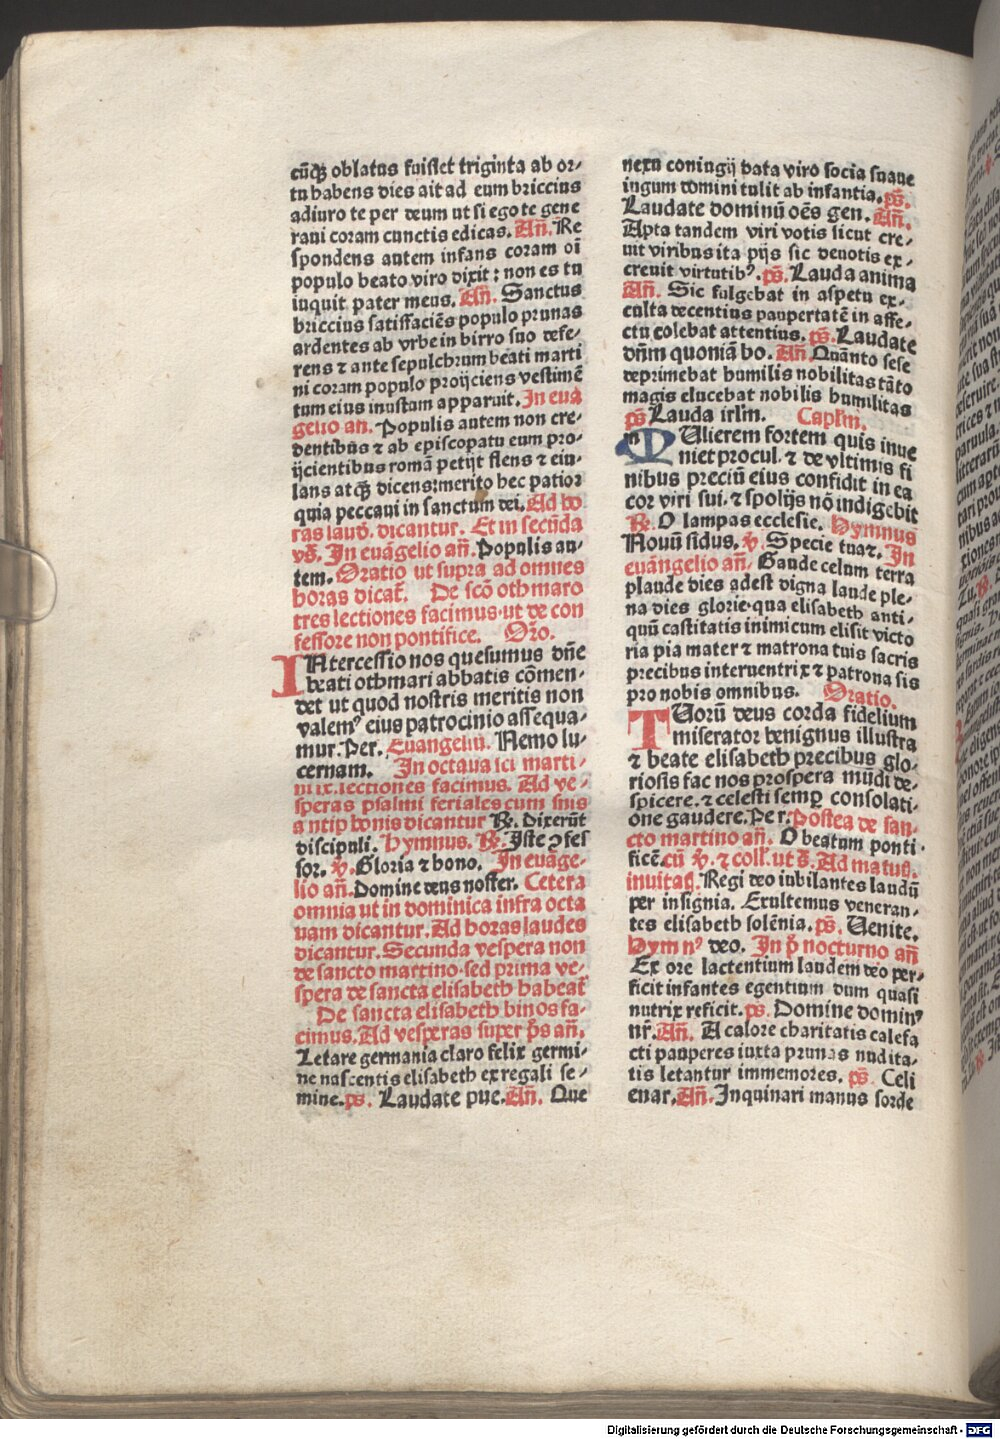 cūqꝫ oblatus fuisset triginta ab or⸗
tu habens dies ait ad eum briccius
adiuro te per deum ut si ego te gene
raui coram cunctis edicas. Añ. Re
spondens autem infans coram oī
populo beato viro dixit : non es tu
inquit pater meus. Añ. Sanctus
briccius satiffaciēs populo prunas
ardentes ab vrbe in birro suo defe⸗
rens ⁊ ante sepulchrum beati marti
ni coram populo proijciens vestimē
tum eius inustum apparuit. In euā
gelio añ. Populis autem non cre⸗
dentibus ⁊ ab episcopatu eum pro⸗
ijcientibus romā petijt flens ⁊ eiu⸗
lans atqꝫ dicens: merito hec patior
quia peccaui in sanctum dei. Ad ho
ras laud. dicantur. Et in secūda
vs̄. In euāgelio añ. Populis au⸗
tem. Oratio ut supra ad omnes
horas dicat̄. De scō othmaro
tres lectiones facimus ut de con
fessore non pontifice. Oro.
INtercessio nos quesumus dñe
beati othmari abbatis cōmen⸗
det ut quod nostris meritis non
valemꝰ eius patrocinio assequa⸗
mur. Per. Euangeliū. Nemo lu⸗
cernam. In octaua sci marti⸗
ni ix. lectiones facimus. Ad ve⸗
speras psalmi feriales cum suis
antiphonis dicantur ℟. Dixerūt
discipuli. Hymnus. ℟. Iste ꝯfes
sor. ℣. Gloria ⁊ hono. In euāge⸗
lio añ. Domine deus noster. Cetera
omnia ut in dominica infra octa
uam dicantur. Ad horas laudes
dicantur. Secunda vespera non
de sancto martino sed prima ve⸗
spera de sancta elisabeth habeat̄
De sancta elisabeth hinos fa⸗
cimus. Ad vesperas super p̄s añ.
Letare germania claro felix germi⸗
ne nascentis elisabeth ex regali se⸗
mine. ps. Laudate pue. Añ. Que
nexu coniugij data viro socia suaue
iugum domini tulit ab infantia. ps̄.
Laudate dominū oēs gen. Añ.
Apta tandem viri votis sicut cre⸗
uit viribus ita pijs sic deuotis ex⸗
creuit virtutibꝰ. ps̄. Lauda anima
Añ. Sic fulgebat in aspectu ex⸗
culta decentius paupertatē in affe⸗
ctu colebat attentius. ps̄. Laudate
dñm quoniā bo. Añ Quānto sese
deprimebat humilis nobilitas tāto
magis elucebat nobilis humilitas
ps̄ Lauda irlm̄. Caplm̄.
MUlierem fortem quis inue
niet procul ⁊ de vltimis fi
nibus preciū eius confidit in ea
cor viri sui. ⁊ spolijs nō indigebit
℟. O lampas ecclesie. Hymnus
Nouū sidus. ℣. Specie tua ⁊. In
euāngelio añ. Gaude celum terra
plaude dies adest digna laude ple⸗
na dies glorie qua elisabeth anti⸗
quū castitatis inimicum elisit victo
ria pia mater ⁊ matrona tuis sacris
precibus interuentrix ⁊ patrona sis
pro nobis omnibus. Oratio.
TUorū deus corda fidelium
miserator benignus illustra
⁊ beate elisabeth precibus glo⸗
riosis fac nos prospera mūdi de⸗
spicere. ⁊ celesti semꝑ consolati⸗
one gaudere. Per. Postea de san⸗
cto martino añ. O beatum ponti⸗
ficē. cū ℣. ⁊ coll. ut s̄. Ad matut̄.
inuitat̄. Regi deo iubilantes laudū
per insignia. Exultemus veneran⸗
tes elisabeth solēnia. ps̄. Uenite.
Hymnꝰ deo. In p̄ nocturno añ
Ex ore lactentium laudem deo per⸗
ficit infantes egentium dum quasi
nutrix reficit. ps. Domine dominꝰ
nr̄. Añ. A calore charitatis calefa
cti pauperes iuxta prunas nudita⸗
tis letantur immemores. ps̄. Celi
enar. Añ. Inquinari manus sorde
Digitalisierung gefördert durch die Deutsche Forschungsgemeinschaft - DFG